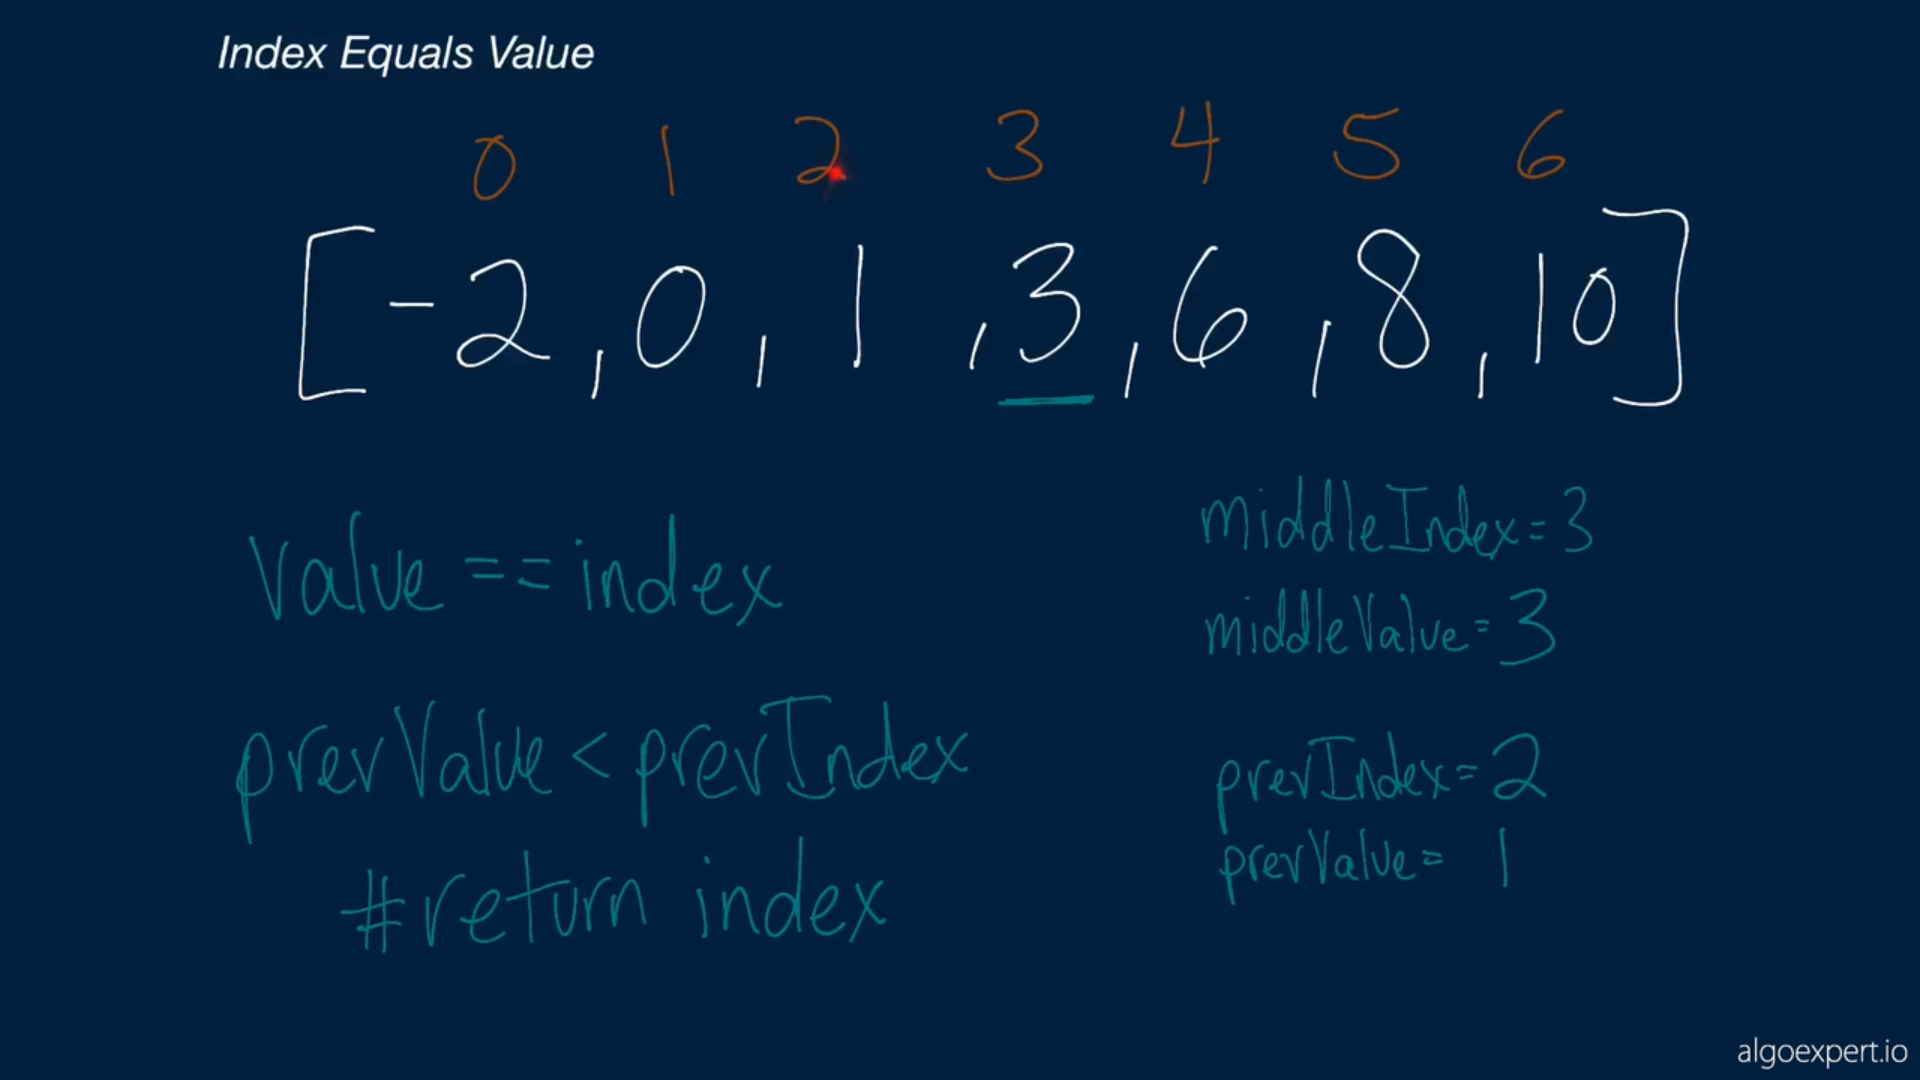 Index Equals Value
0 1 2 3 4 5 6
[-2, 0, 1, 3, 6, 8, 10]
value == index
prevValue < prevIndex
#return index
middleIndex=3
middleValue=3
prevIndex=2
prevValue= 1
algoexpert.io